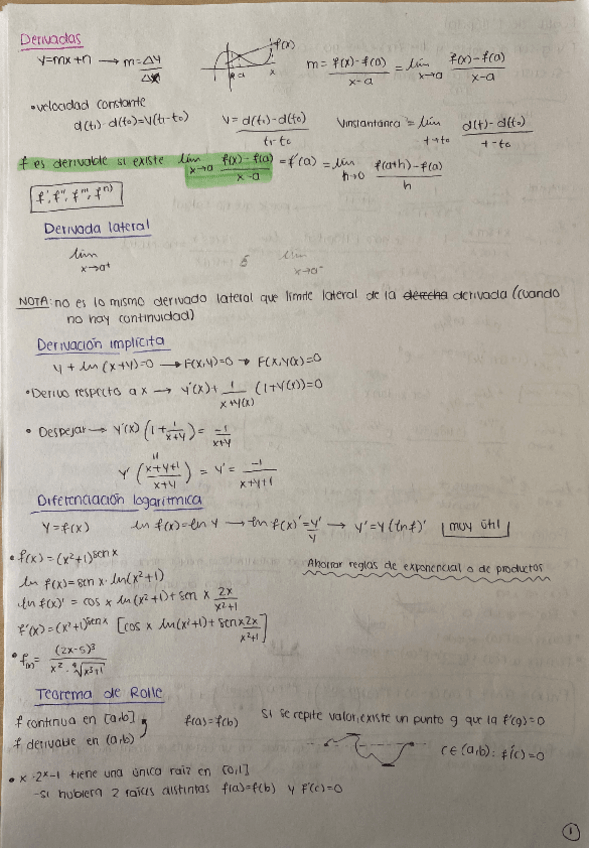 Derivadas
y=mx+n → m=Δy/Δx
f(x)
a x
m = f(x)-f(a)/x-a = lím x→a f(x)-f(a)/x-a
• velocidad constante
d(t₁)-d(t₀)=v(t₁-t₀) v = d(t₁)-d(t₀)/t₁-t₀ Vinstantánea = lím t→t₀ d(t)-d(t₀)/t-t₀
f es derivable si existe lím x→a f(x)-f(a)/x-a = f'(a) = lím h→0 f(a+h)-f(a)/h
f', f'', f''', fⁿ⁾
Derivada lateral
lím x→a⁺ ó lím x→a⁻
NOTA: no es lo mismo derivada lateral que límite lateral de la derecha derivada (cuando
no hay continuidad)
Derivación implícita
y + ln (x+y)=0 → F(x,y)=0 → F(x,y(x))=0
• Derivo respecto a x → y'(x)+ 1/x+y(x) (1+y'(x))=0
• Despejar → y'(x) (1+ 1/x+y) = -1/x+y
y' (x+y+1/x+y) = y' = -1/x+y+1
Diferenciación logarítmica
y=f(x) ln f(x)=ln y → ln f(x)' = y'/y → y'=y (ln f)' muy útil
• f(x) = (x²+1)^sen x
Ahorrar reglas de exponencial o de productos
ln f(x)= sen x · ln(x²+1)
ln f(x)' = cos x ln (x²+1)+ sen x 2x/x²+1
f'(x)=(x²+1)^sen x [cos x ln(x²+1)+ sen x 2x/x²+1]
• f(x)= (2x-5)³/x² · √x³+1
Teorema de Rolle
f continua en [a,b] f(a)=f(b) Si se repite valor, existe un punto g que la f'(g)=0
f derivable en (a,b) c∈(a,b): f'(c)=0
• x·2ˣ-1 tiene una única raíz en [0,1]
-si hubiera 2 raíces distintas f(a)=f(b) y f'(c)=0
1